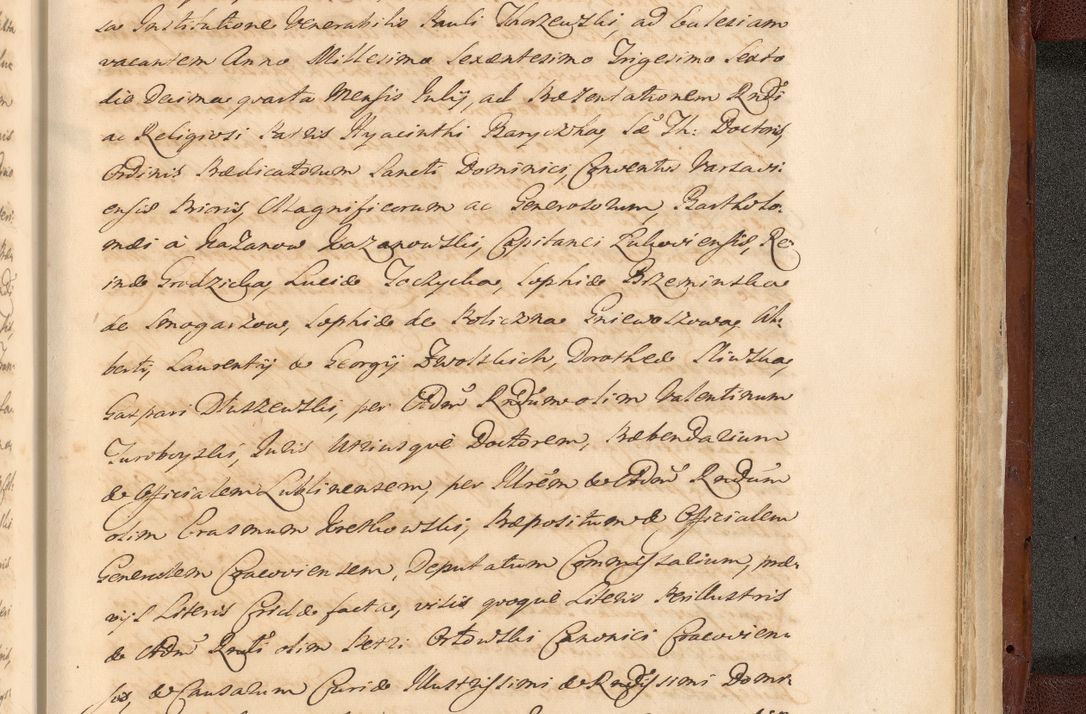 sa Institutione Venerabilis Pauli Thorzewski, ad Eclesiam
vacantem Anno Millesimo Sexcentesimo Trigesimo Sexto
die Decima quarta Mensis Julij, ad Præsentationem Rndi
ac Religiosi Patris Hyacinthi Baryczka, Sæ Th: Doctoris,
Ordinis Prædicatorum Sancti Dominici, Conventus Varsavi
ensis Prioris, Magnificorum ac Generosorum, Bartholo-
mæi à Kazanow Kazanowski, Capitanei Lukoviensis, Re-
inæ Grodzicka, Luciæ Toczycka, Sophiæ Brzeminska
de Smogarzow, Sophiæ de Policzna Gniewoszowa, Al-
berti, Laurentij & Georgij Zwolskich, Dorotheæ Sliwska,
Gaspari Dłuszewski, per Adm Rndum olim Valentinum
Turoboyski, Juris Utriusque Doctorem, Præbendarium
& Officialem Lublinensem, per Illrem & Adm Rndum
olim Erasmum Kretkowski, Præpositum & Officialem
Generalem Cracoviensem, Deputatum Commissarium, præ-
vijs Literis Cridæ facta, visis quoque Literis Perillustris
& Adm Rndi olim Petri Orłowski Canonici Cracovien
sis, & Causarum Curiæ Illustrissimi & Rndissimi Domi-